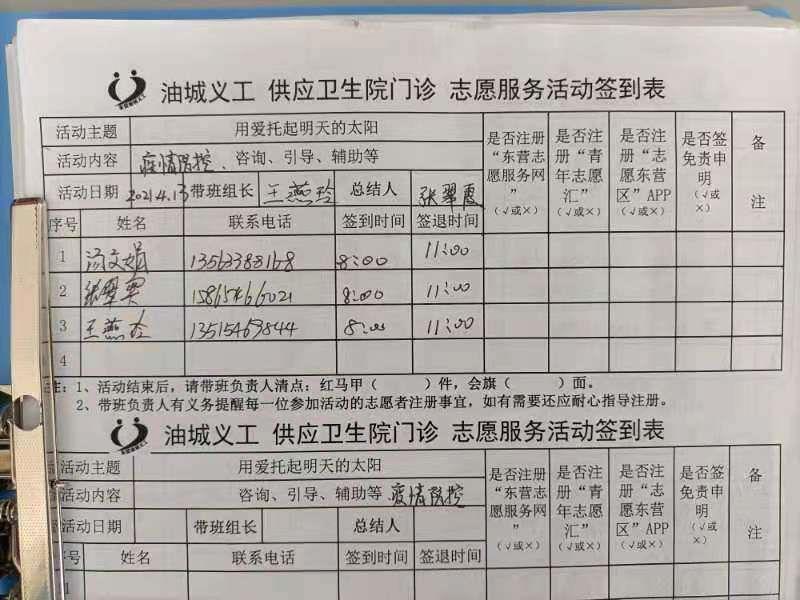 油城义工 供应卫生院门诊 志愿服务活动签到表
活动主题 用爱托起明天的太阳 是否注册“东营志愿服务网”（√或×） 是否注册“青年志愿汇”（√或×） 是否注册“志愿东营区”APP（√或×） 是否签免责申明（√或×） 备注
活动内容 疫情防控、咨询、引导、辅助等
活动日期 2021.4.13 带班组长 王燕玲 总结人 张翠霞
序号 姓名 联系电话 签到时间 签退时间
1 汤文娟 13563388168 8:00 11:00
2 15865466021 8:00 11:00
3 王燕玲 13515469844 8:00 11:00
4
注：1、活动结束后，请带班负责人清点：红马甲（ ）件，会旗（ ）面。
2、带班负责人有义务提醒每一位参加活动的志愿者注册事宜，如有需要还应耐心指导注册。
油城义工 供应卫生院门诊 志愿服务活动签到表
活动主题 用爱托起明天的太阳 是否注册“东营志愿服务网”（√或×） 是否注册“青年志愿汇”（√或×） 是否注册“志愿东营区”APP（√或×） 是否签免责申明（√或×） 备注
活动内容 咨询、引导、辅助等 疫情防控
活动日期 带班组长 总结人
序号 姓名 联系电话 签到时间 签退时间
1